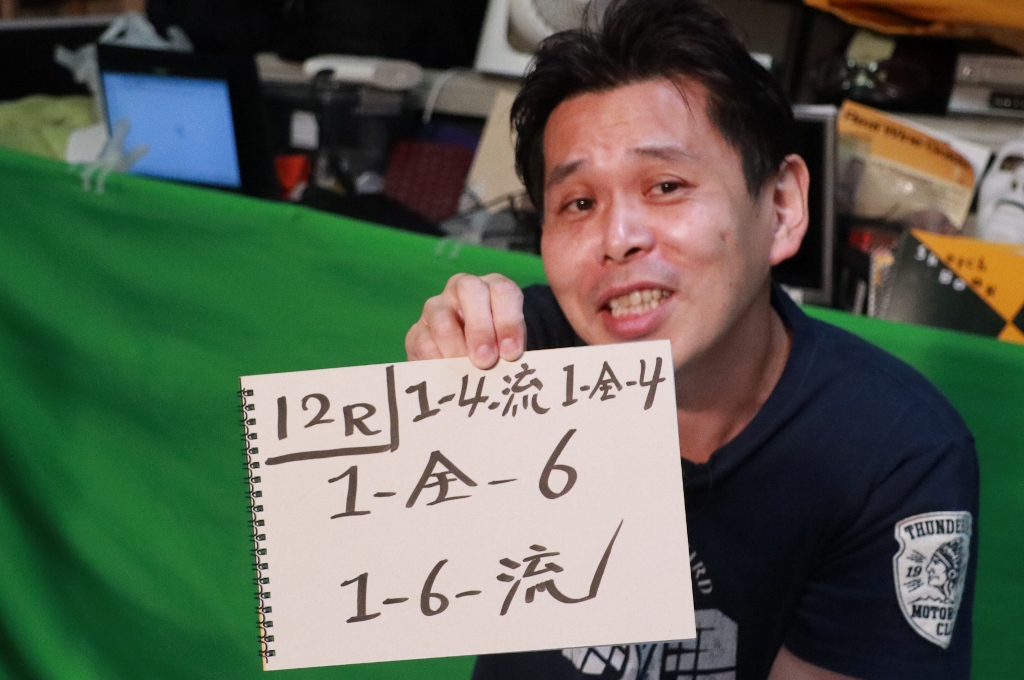 12R 1-4-流 1-全-4
1-全-6
1-6-流
THUNDE
19
MOTOR
CL
ARD